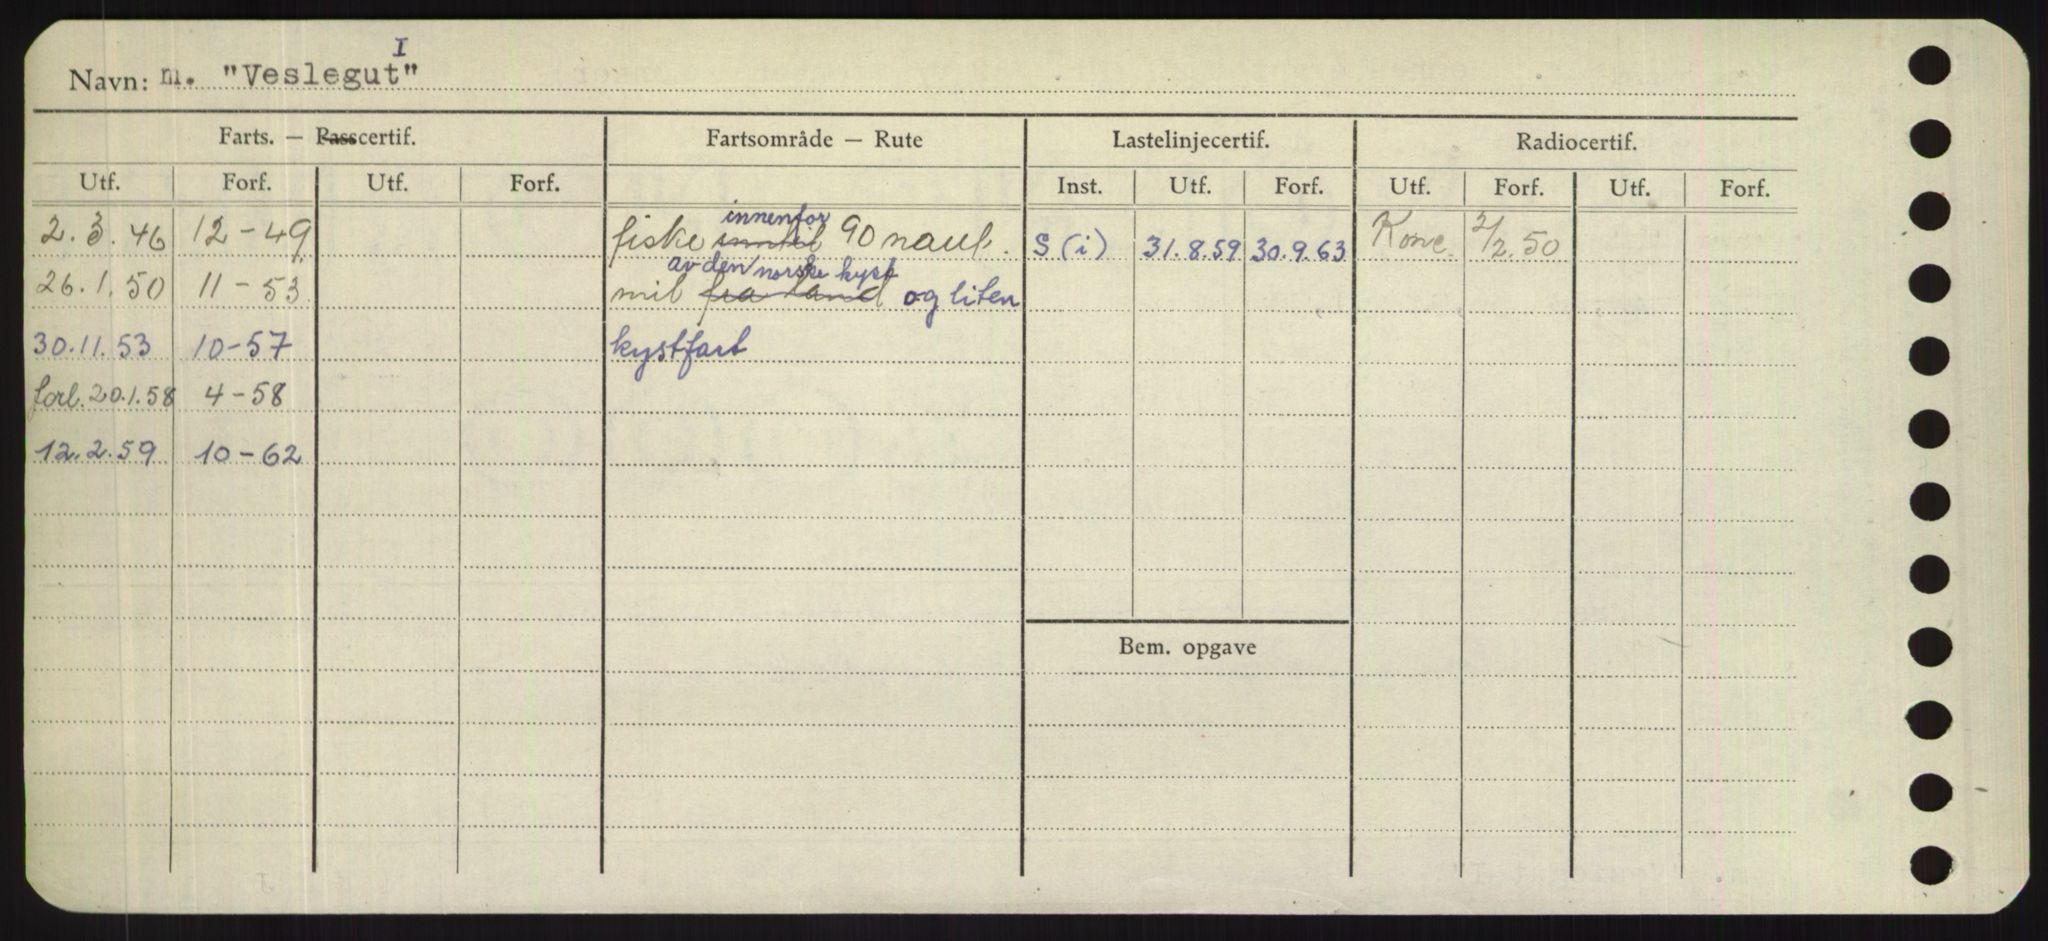 Navn: m. "Veslegut I"
Farts. — Passcertif. Fartsområde — Rute Lastelinjecertif. Radiocertif.
Utf. Forf. Utf. Forf. Inst. Utf. Forf. Utf. Forf. Utf. Forf.
innenfor
2.3.46 12-49 fiske inntil 90 naut. S (i) 31.8.59 30.9.63 Konc. 2/2.50
av den norske kyst
26.1.50 11-53 mil fra land og liten
30.11.53 10-57 kystfart
forl. 20.1.58 4-58
12.2.59 10-62
Bem. opgave